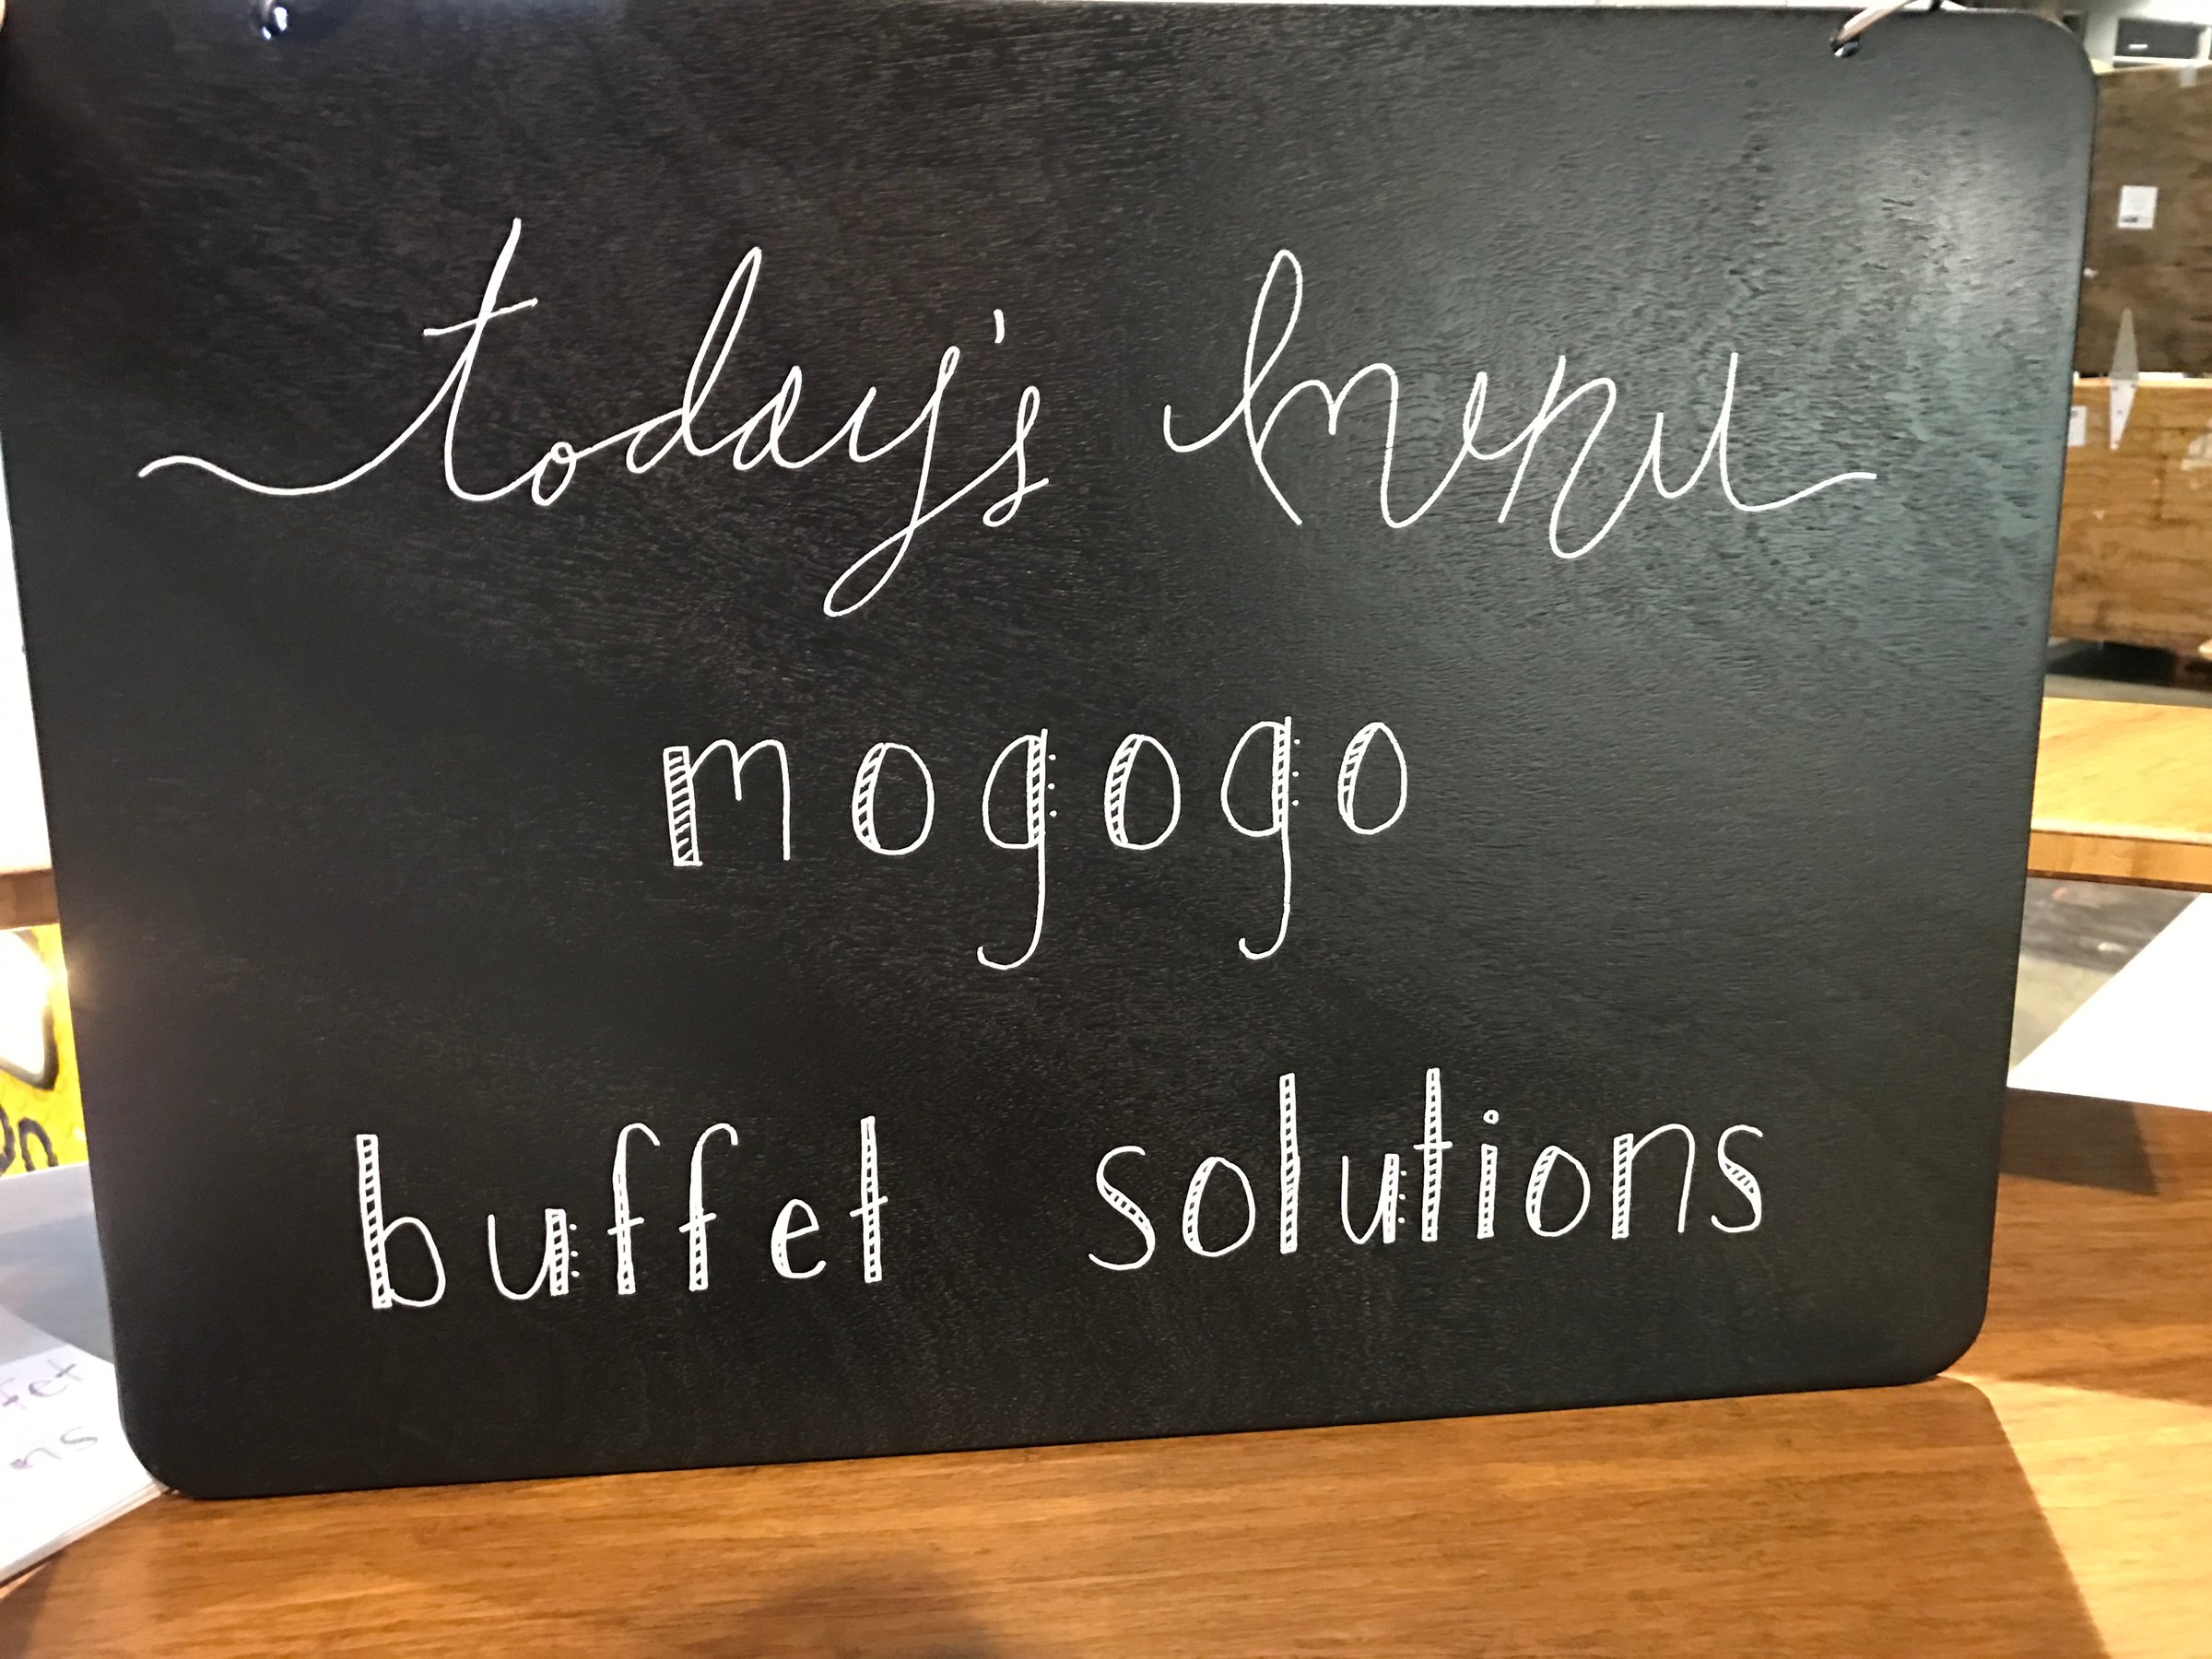 today's menu
mogogo
buffet solutions
fet
ns